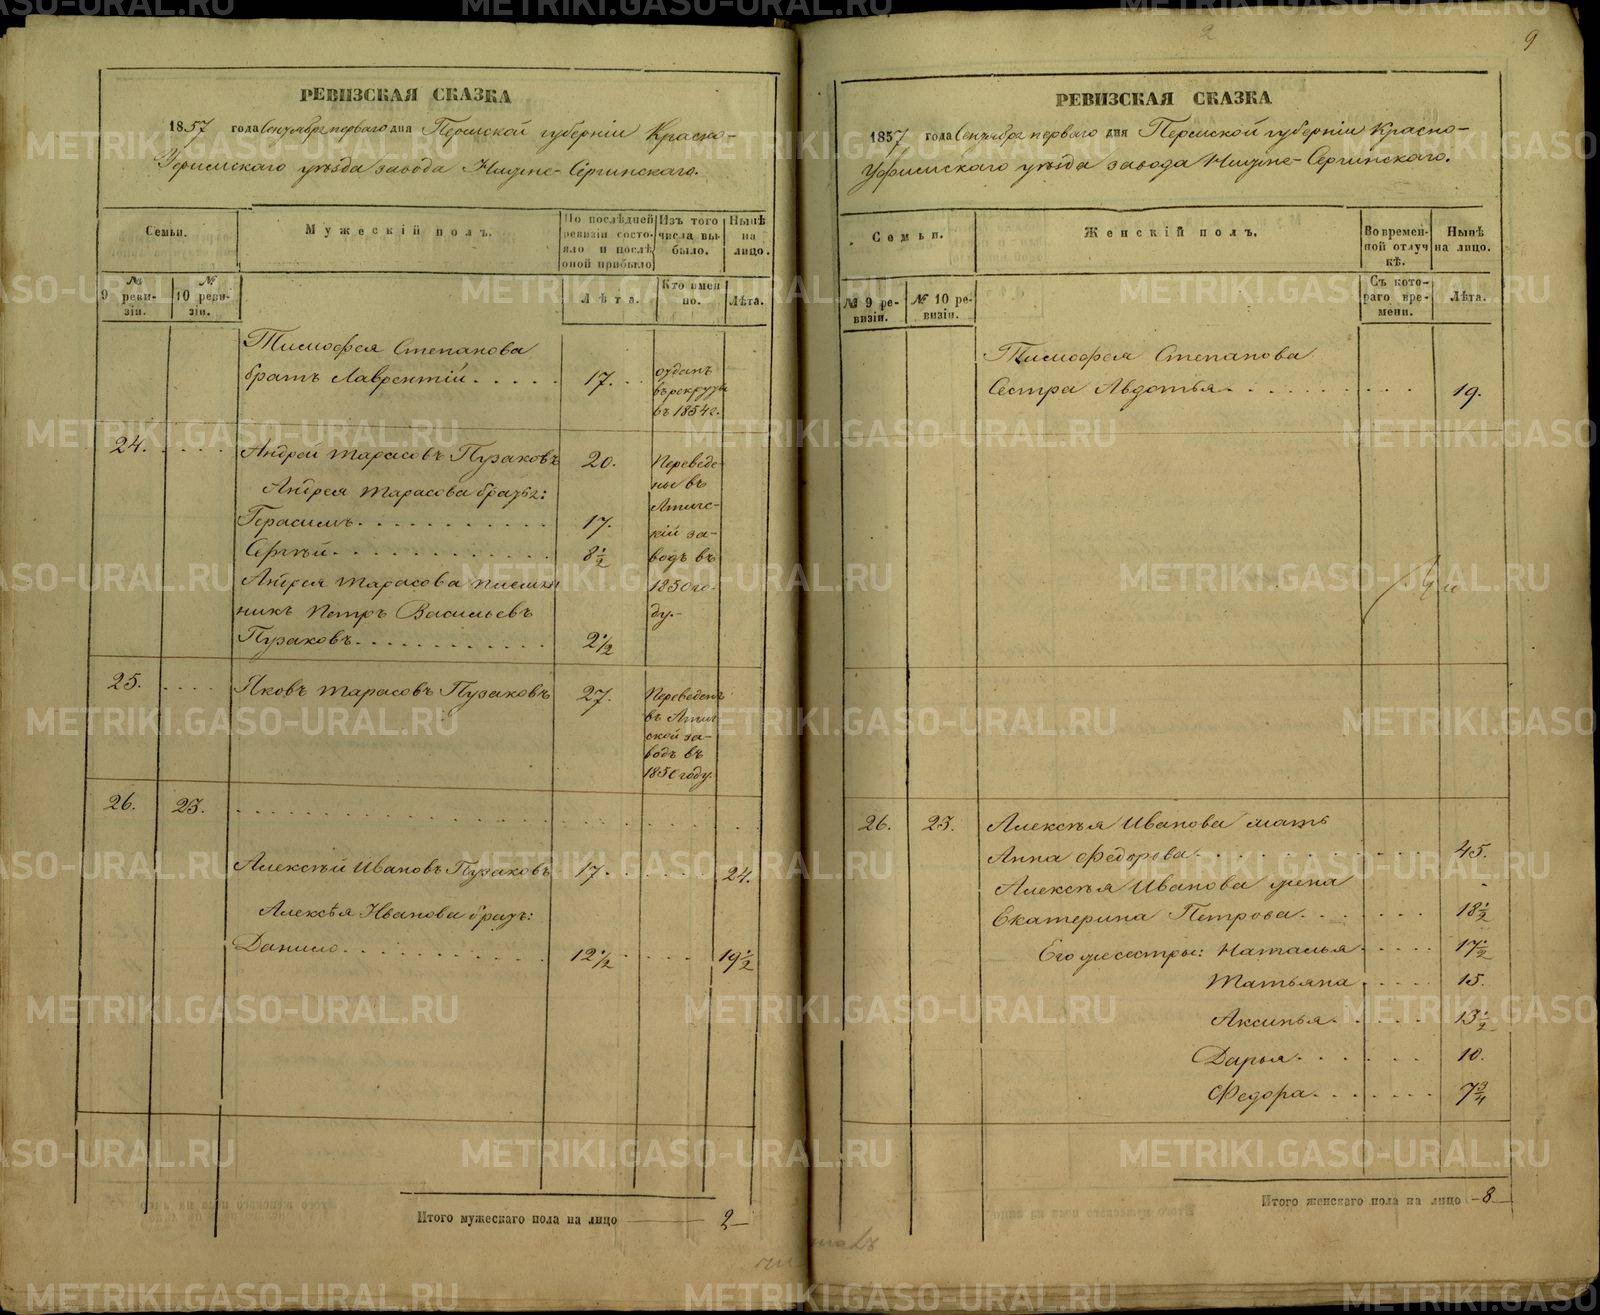 9
РЕВИЗСКАЯ СКАЗКА
1857 года Сентября перваго дня Пермской губернiи Красно-
Уфимскаго уѣзда завода Нижне-Сергинскаго.
Семьи.
Мужескiй полъ.
По послѣдней ревизiи состояло и послѣ оной прибыло
Изъ того числа выбыло.
Нынѣ на лицо.
№ 9 ревизiи.
№ 10 ревизiи.
Лѣта.
Кто именно.
Лѣта.
Тимофея Степанова
братъ Лаврентiй 17. отданъ въ рекруты въ 1854 г.
24. Андрей Тарасовъ Пузаковъ 20. Переведены въ Атигскiй заводъ въ 1850 году.
Андрея Тарасова братья:
Герасимъ 17.
Сергѣй 8 1/2
Андрея Тарасова племян
никъ Петръ Васильевъ
Пузаковъ 2 1/2
25. Яковъ Тарасовъ Пузаковъ 27. Переведенъ въ Атигской заводъ въ 1850 году.
26. 23.
Алексѣй Ивановъ Пузаковъ 17. 24.
Алексѣя Иванова братъ:
Данило 12 1/2 19 1/2
Итого мужескаго пола на лицо 2
РЕВИЗСКАЯ СКАЗКА
1857 года Сентября перваго дня Пермской губернiи Красно-
Уфимскаго уѣзда завода Нижне-Сергинскаго.
Семьи.
Женскiй полъ.
Во временной отлучкѣ.
Нынѣ на лицо.
№ 9 ревизiи.
№ 10 ревизiи.
Съ котораго времени.
Лѣта.
Тимофея Степанова
Сестра Авдотья 19.
26. 23. Алексѣя Иванова мать
Анна Федорова 45.
Алексѣя Иванова жена
Екатерина Петрова 18 1/2
Его же сестры: Наталья 17 1/2
Татьяна 15.
Аксинья 13 1/2
Дарья 10.
Федора 7 3/4
Итого женскаго пола на лицо 8
METRIKI.GASO-URAL.RU